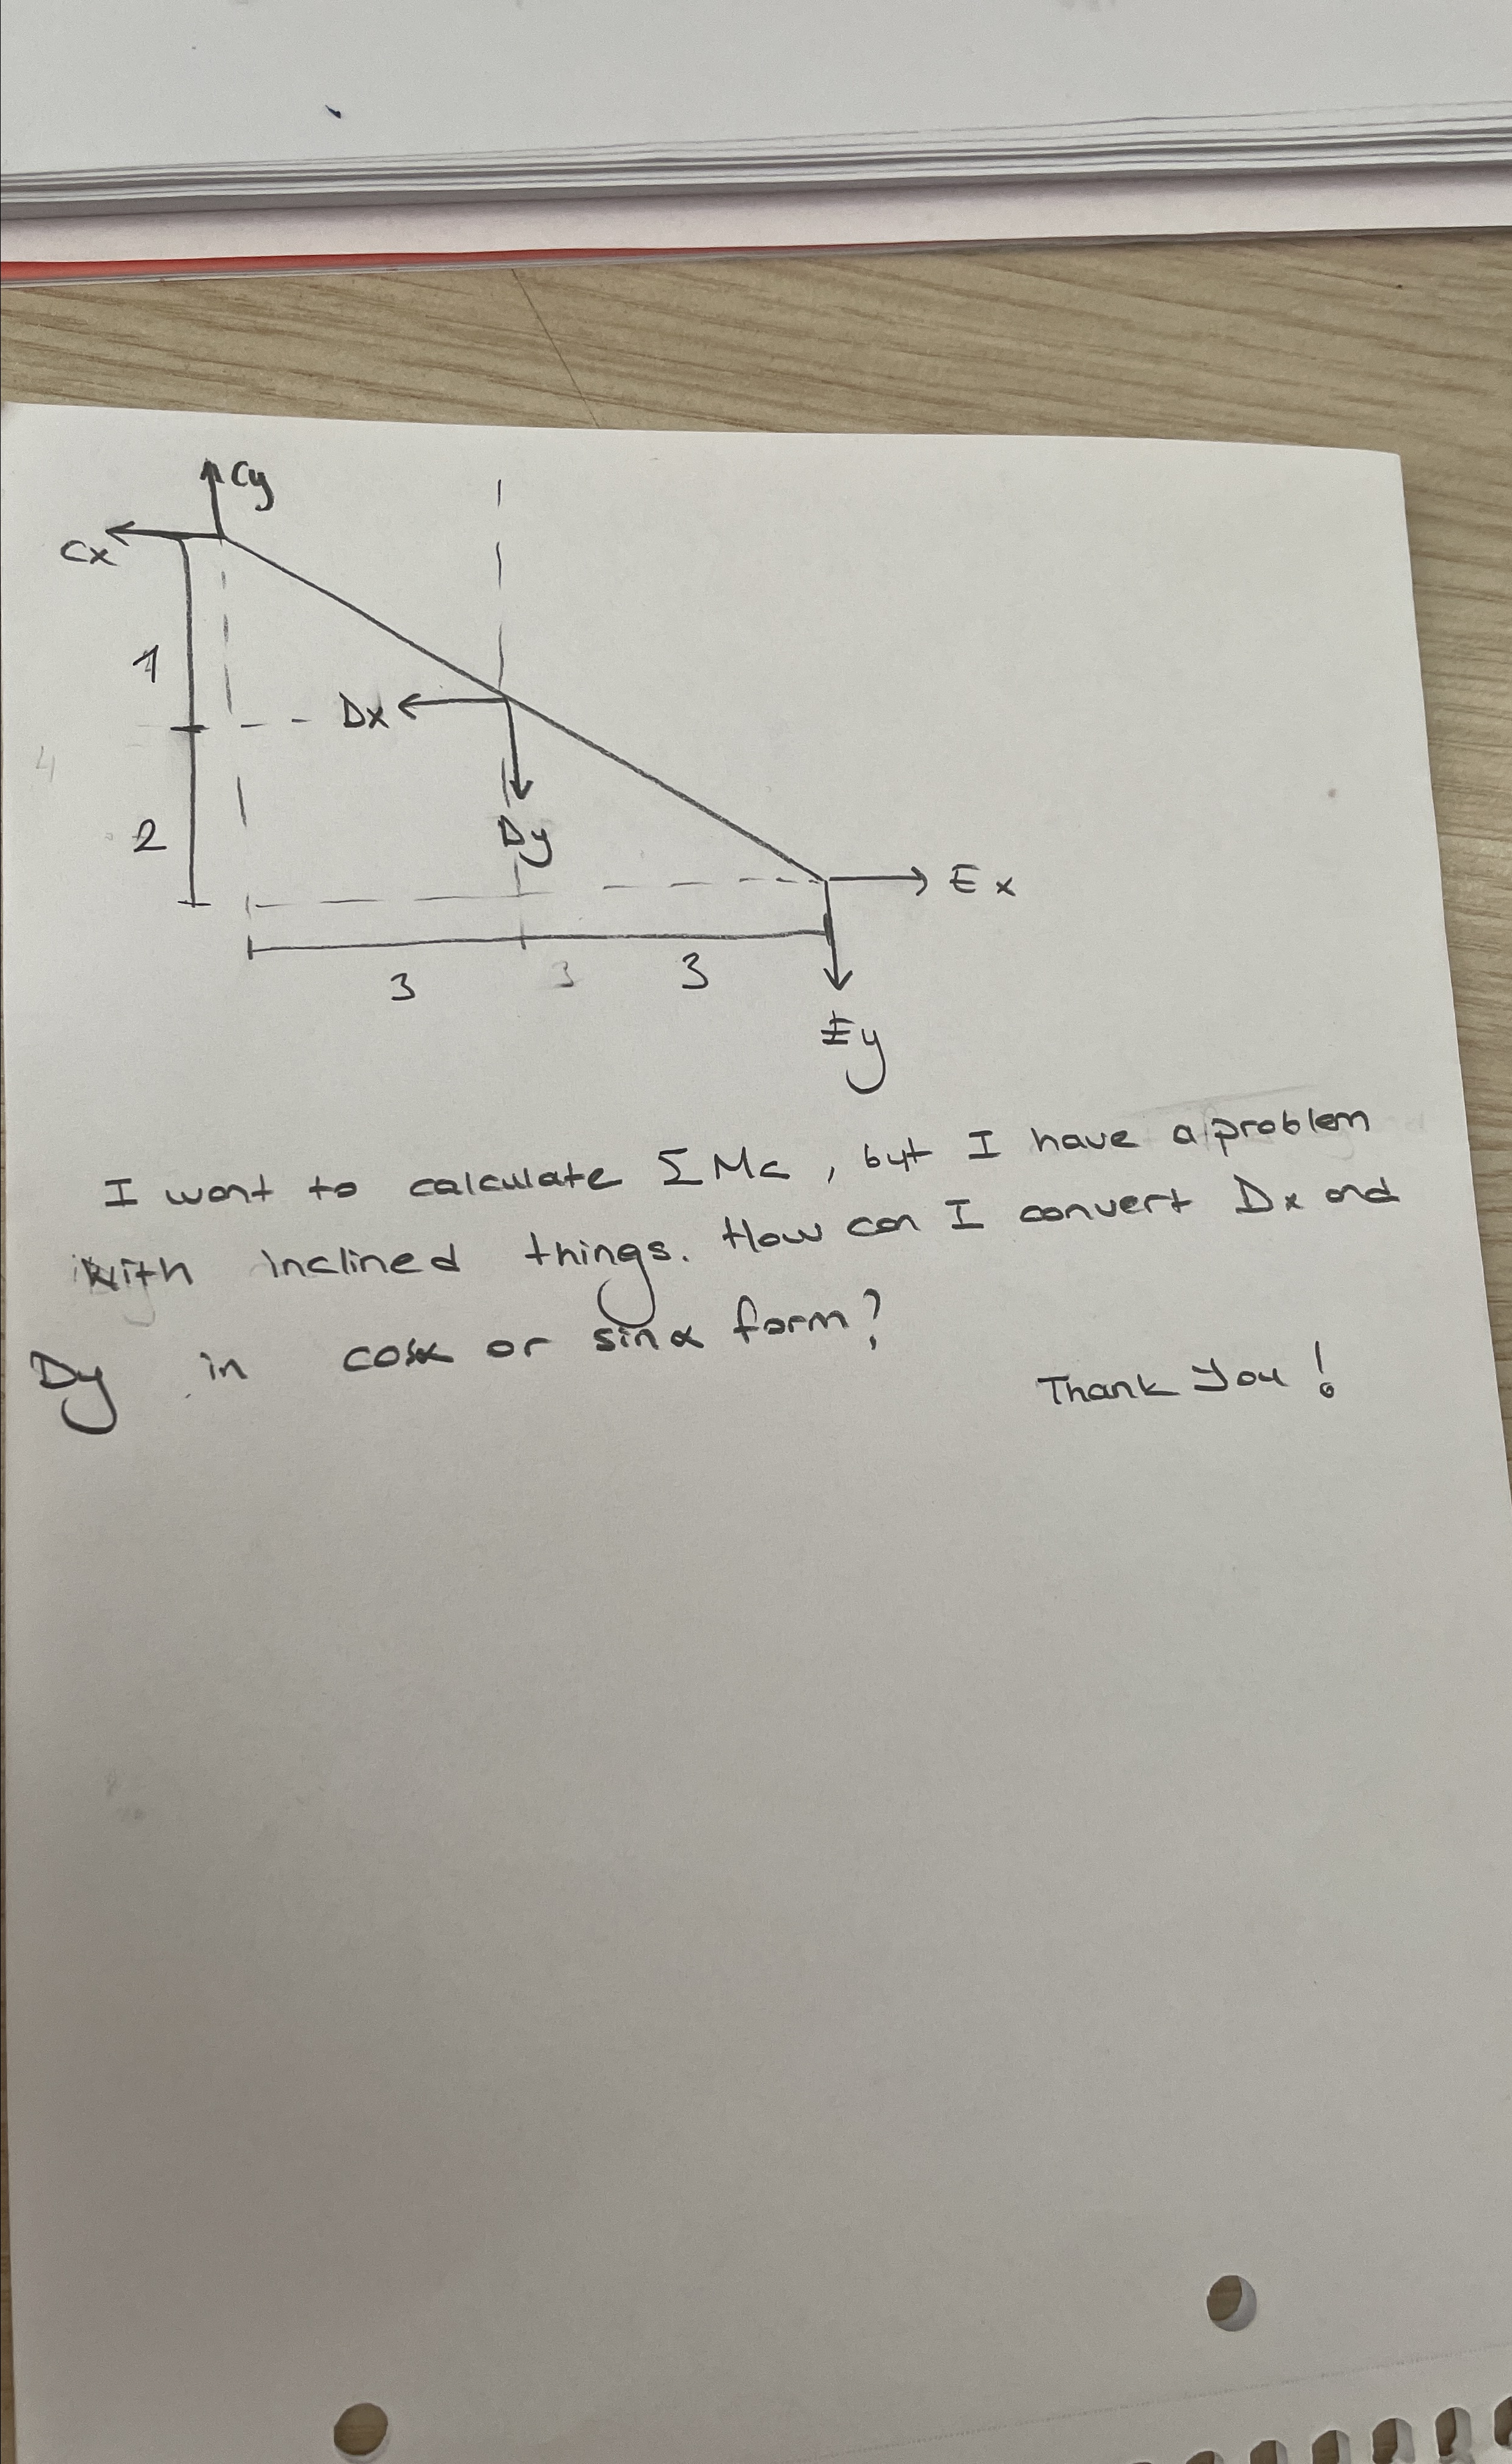 Cy
Cx
1
Dx
4
2
Dy
Ex
3 3 3
Ey
I want to calculate ΣMc, but I have a problem
with inclined things. How can I convert Dx and
Dy in cosα or sinα form?
Thank you!